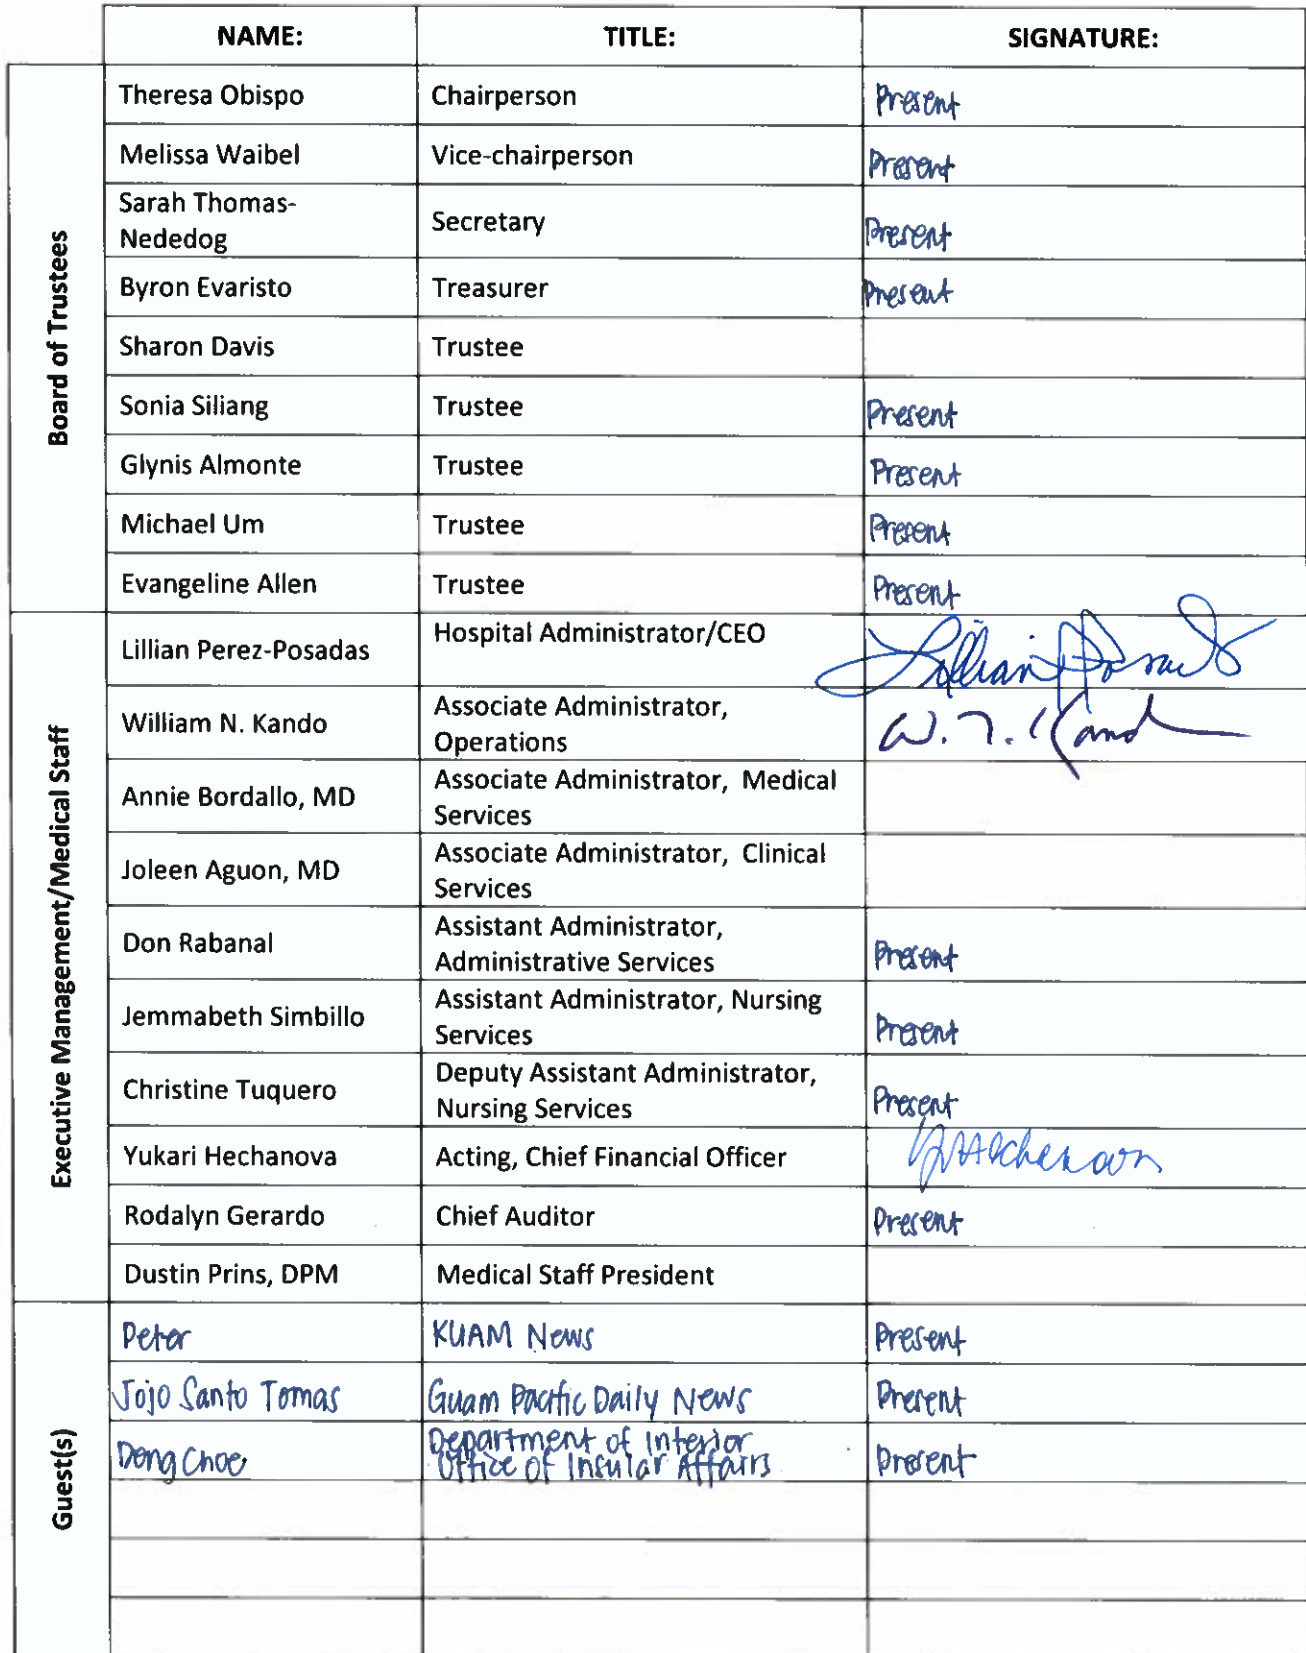 NAME: TITLE: SIGNATURE:
Board of Trustees
Theresa Obispo Chairperson Present
Melissa Waibel Vice-chairperson Present
Sarah Thomas-
Nededog Secretary Present
Byron Evaristo Treasurer Present
Sharon Davis Trustee
Sonia Siliang Trustee Present
Glynis Almonte Trustee Present
Michael Um Trustee Present
Evangeline Allen Trustee Present
Executive Management/Medical Staff
Lillian Perez-Posadas Hospital Administrator/CEO
William N. Kando Associate Administrator,
Operations W. N. Kando
Annie Bordallo, MD Associate Administrator, Medical
Services
Joleen Aguon, MD Associate Administrator, Clinical
Services
Don Rabanal Assistant Administrator,
Administrative Services Present
Jemmabeth Simbillo Assistant Administrator, Nursing
Services Present
Christine Tuquero Deputy Assistant Administrator,
Nursing Services Present
Yukari Hechanova Acting, Chief Financial Officer
Rodalyn Gerardo Chief Auditor Present
Dustin Prins, DPM Medical Staff President
Guest(s)
Peter KUAM News Present
Jojo Santo Tomas Guam Pacific Daily News Present
Dong Choe Department of Interior
Office of Insular Affairs Present